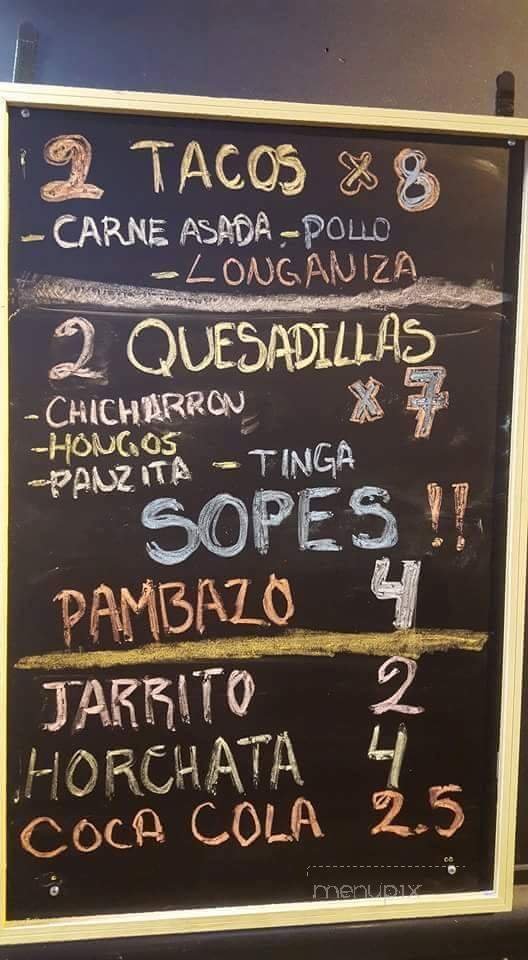 2 TACOS x 8
- CARNE ASADA - POLLO
- LONGANIZA
2 QUESADILLAS
x 7
- CHICHARRON
- HONGOS
- PANZITA - TINGA
SOPES !!
PAMBAZO 4
JARRITO 2
HORCHATA 4
COCA COLA 2.5
menupix